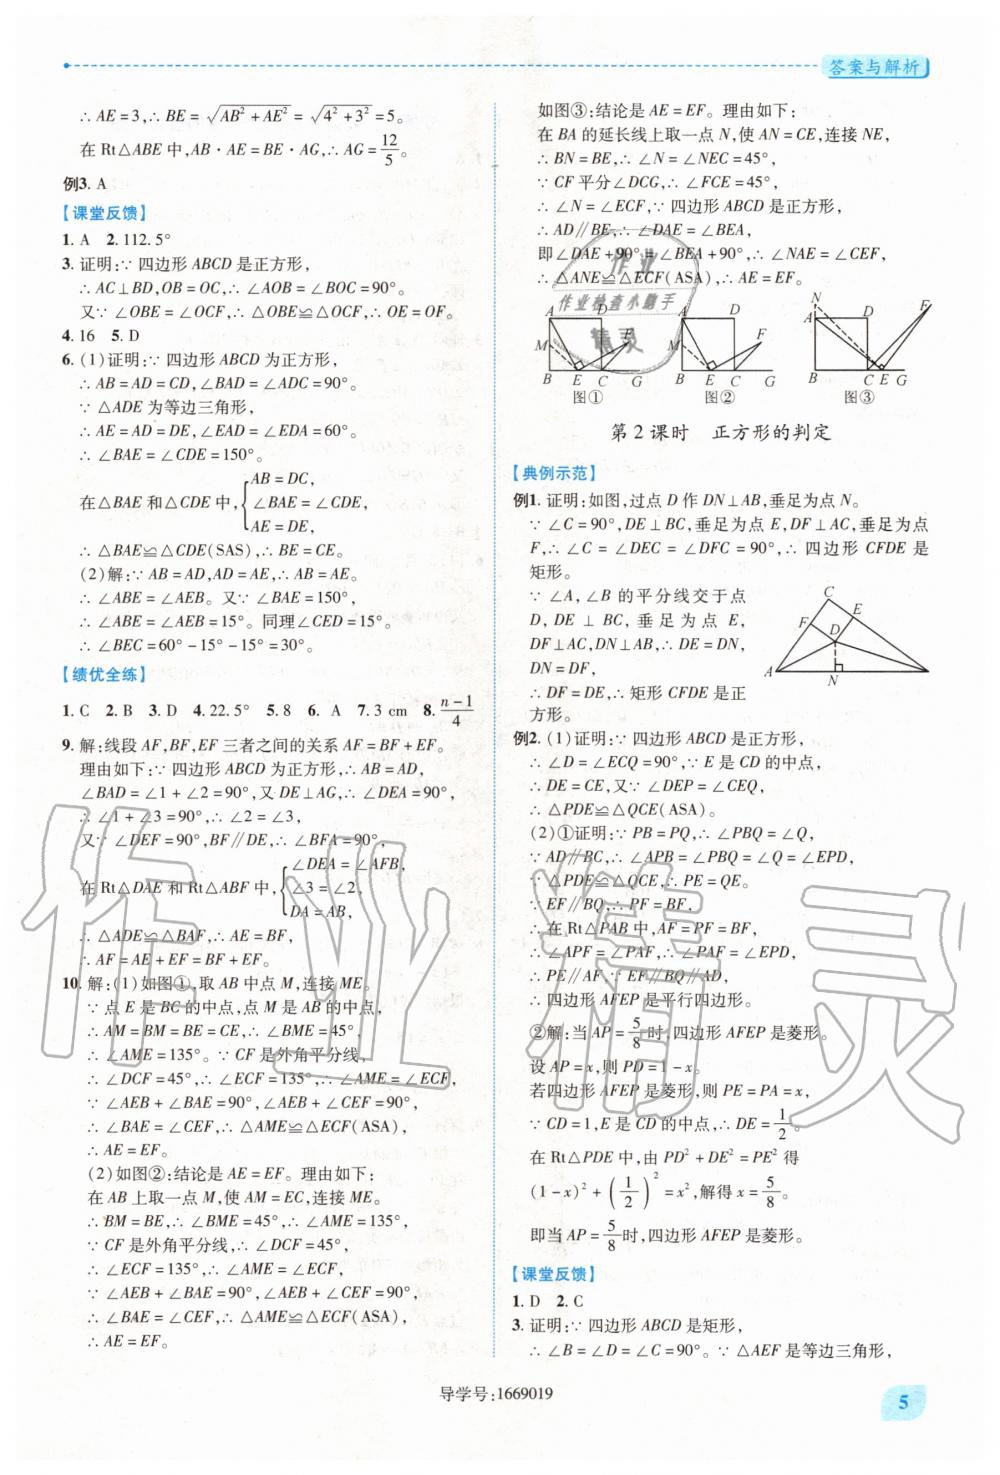 答案与解析
∴AE=3,∴BE=√(AB²+AE²)=√(4²+3²)=5。
在Rt△ABE中,AB·AE=BE·AG,∴AG=12/5。
例3. A
【课堂反馈】
1. A 2. 112.5°
3. 证明:∵四边形ABCD是正方形,
∴AC⊥BD,OB=OC,∴∠AOB=∠BOC=90°。
又∵∠OBE=∠OCF,∴△OBE≌△OCF,∴OE=OF。
4. 16 5. D
6. (1)证明:∵四边形ABCD为正方形,
∴AB=AD=CD,∠BAD=∠ADC=90°。
∵△ADE为等边三角形,
∴AE=AD=DE,∠EAD=∠EDA=60°。
∴∠BAE=∠CDE=150°。
在△BAE和△CDE中,{AB=DC,
∠BAE=∠CDE,
AE=DE,
∴△BAE≌△CDE(SAS),∴BE=CE。
(2)解:∵AB=AD,AD=AE,∴AB=AE。
∴∠ABE=∠AEB。又∵∠BAE=150°,
∴∠ABE=∠AEB=15°。同理∠CED=15°。
∴∠BEC=60°-15°-15°=30°。
【绩优全练】
1. C 2. B 3. D 4. 22.5° 5. 8 6. A 7. 3 cm 8. (n-1)/4
9. 解:线段AF,BF,EF三者之间的关系AF=BF+EF。
理由如下:∵四边形ABCD为正方形,∴AB=AD,
∠BAD=∠1+∠2=90°,又DE⊥AG,∴∠DEA=90°,
∴∠1+∠3=90°,∴∠2=∠3,
又∵∠DEF=90°,BF∥DE,∴∠BFA=90°,
在Rt△DAE和Rt△ABF中,{∠DEA=∠AFB,
∠3=∠2,
DA=AB,
∴△ADE≌△BAF,∴AE=BF,
∴AF=AE+EF=BF+EF。
10. 解:(1)如图①,取AB中点M,连接ME。
∵点E是BC的中点,点M是AB的中点,
∴AM=BM=BE=CE,∴∠BME=45°,
∴∠AME=135°。∵CF是外角平分线,
∴∠DCF=45°,∴∠ECF=135°,∴∠AME=∠ECF,
∵∠AEB+∠BAE=90°,∠AEB+∠CEF=90°,
∴∠BAE=∠CEF,∴△AME≌△ECF(ASA),
∴AE=EF。
(2)如图②:结论是AE=EF。理由如下:
在AB上取一点M,使AM=EC,连接ME。
∴BM=BE,∴∠BME=45°,∴∠AME=135°,
∵CF是外角平分线,∴∠DCF=45°,
∴∠ECF=135°,∴∠AME=∠ECF,
∵∠AEB+∠BAE=90°,∠AEB+∠CEF=90°,
∴∠BAE=∠CEF,∴△AME≌△ECF(ASA),
∴AE=EF。
如图③:结论是AE=EF。理由如下:
在BA的延长线上取一点N,使AN=CE,连接NE,
∴BN=BE,∴∠N=∠NEC=45°,
∵CF平分∠DCG,∴∠FCE=45°,
∴∠N=∠ECF,∵四边形ABCD是正方形,
∴AD∥BE,∴∠DAE=∠BEA,
即∠DAE+90°=∠BEA+90°,∴∠NAE=∠CEF,
∴△ANE≌△ECF(ASA),∴AE=EF。
A D M F B E C G
图①
A D M F B E C G
图②
N F A D B C E G
图③
第2课时 正方形的判定
【典例示范】
例1. 证明:如图,过点D作DN⊥AB,垂足为点N。
∵∠C=90°,DE⊥BC,垂足为点E,DF⊥AC,垂足为点
F,∴∠C=∠DEC=∠DFC=90°,∴四边形CFDE是
矩形。
∵∠A,∠B的平分线交于点
D,DE⊥BC,垂足为点E,
DF⊥AC,DN⊥AB,∴DE=DN,
DN=DF。
∴DF=DE,∴矩形CFDE是正
方形。
C E F D A N B
例2. (1)证明:∵四边形ABCD是正方形,
∴∠D=∠ECQ=90°,∵E是CD的中点,
∴DE=CE,又∵∠DEP=∠CEQ,
∴△PDE≌△QCE(ASA)。
(2)①证明:∵PB=PQ,∴∠PBQ=∠Q,
∵AD∥BC,∴∠APB=∠PBQ=∠Q=∠EPD,
∵△PDE≌△QCE,∴PE=QE。
∵EF∥BQ,∴PF=BF,
∴在Rt△PAB中,AF=PF=BF,
∴∠APF=∠PAF,∴∠PAF=∠EPD,
∴PE∥AF。∵EF∥BQ∥AD,
∴四边形AFEP是平行四边形。
②解:当AP=5/8时,四边形AFEP是菱形。
设AP=x,则PD=1-x。
若四边形AFEP是菱形,则PE=PA=x,
∵CD=1,E是CD的中点,∴DE=1/2。
在Rt△PDE中,由PD²+DE²=PE²得
(1-x)²+(1/2)²=x²,解得x=5/8。
即当AP=5/8时,四边形AFEP是菱形。
【课堂反馈】
1. D 2. C
3. 证明:∵四边形ABCD是矩形,
∴∠B=∠D=∠C=90°。∵△AEF是等边三角形,
导学号:1669019
5
作业
作业检查小助手
精灵
作业精灵